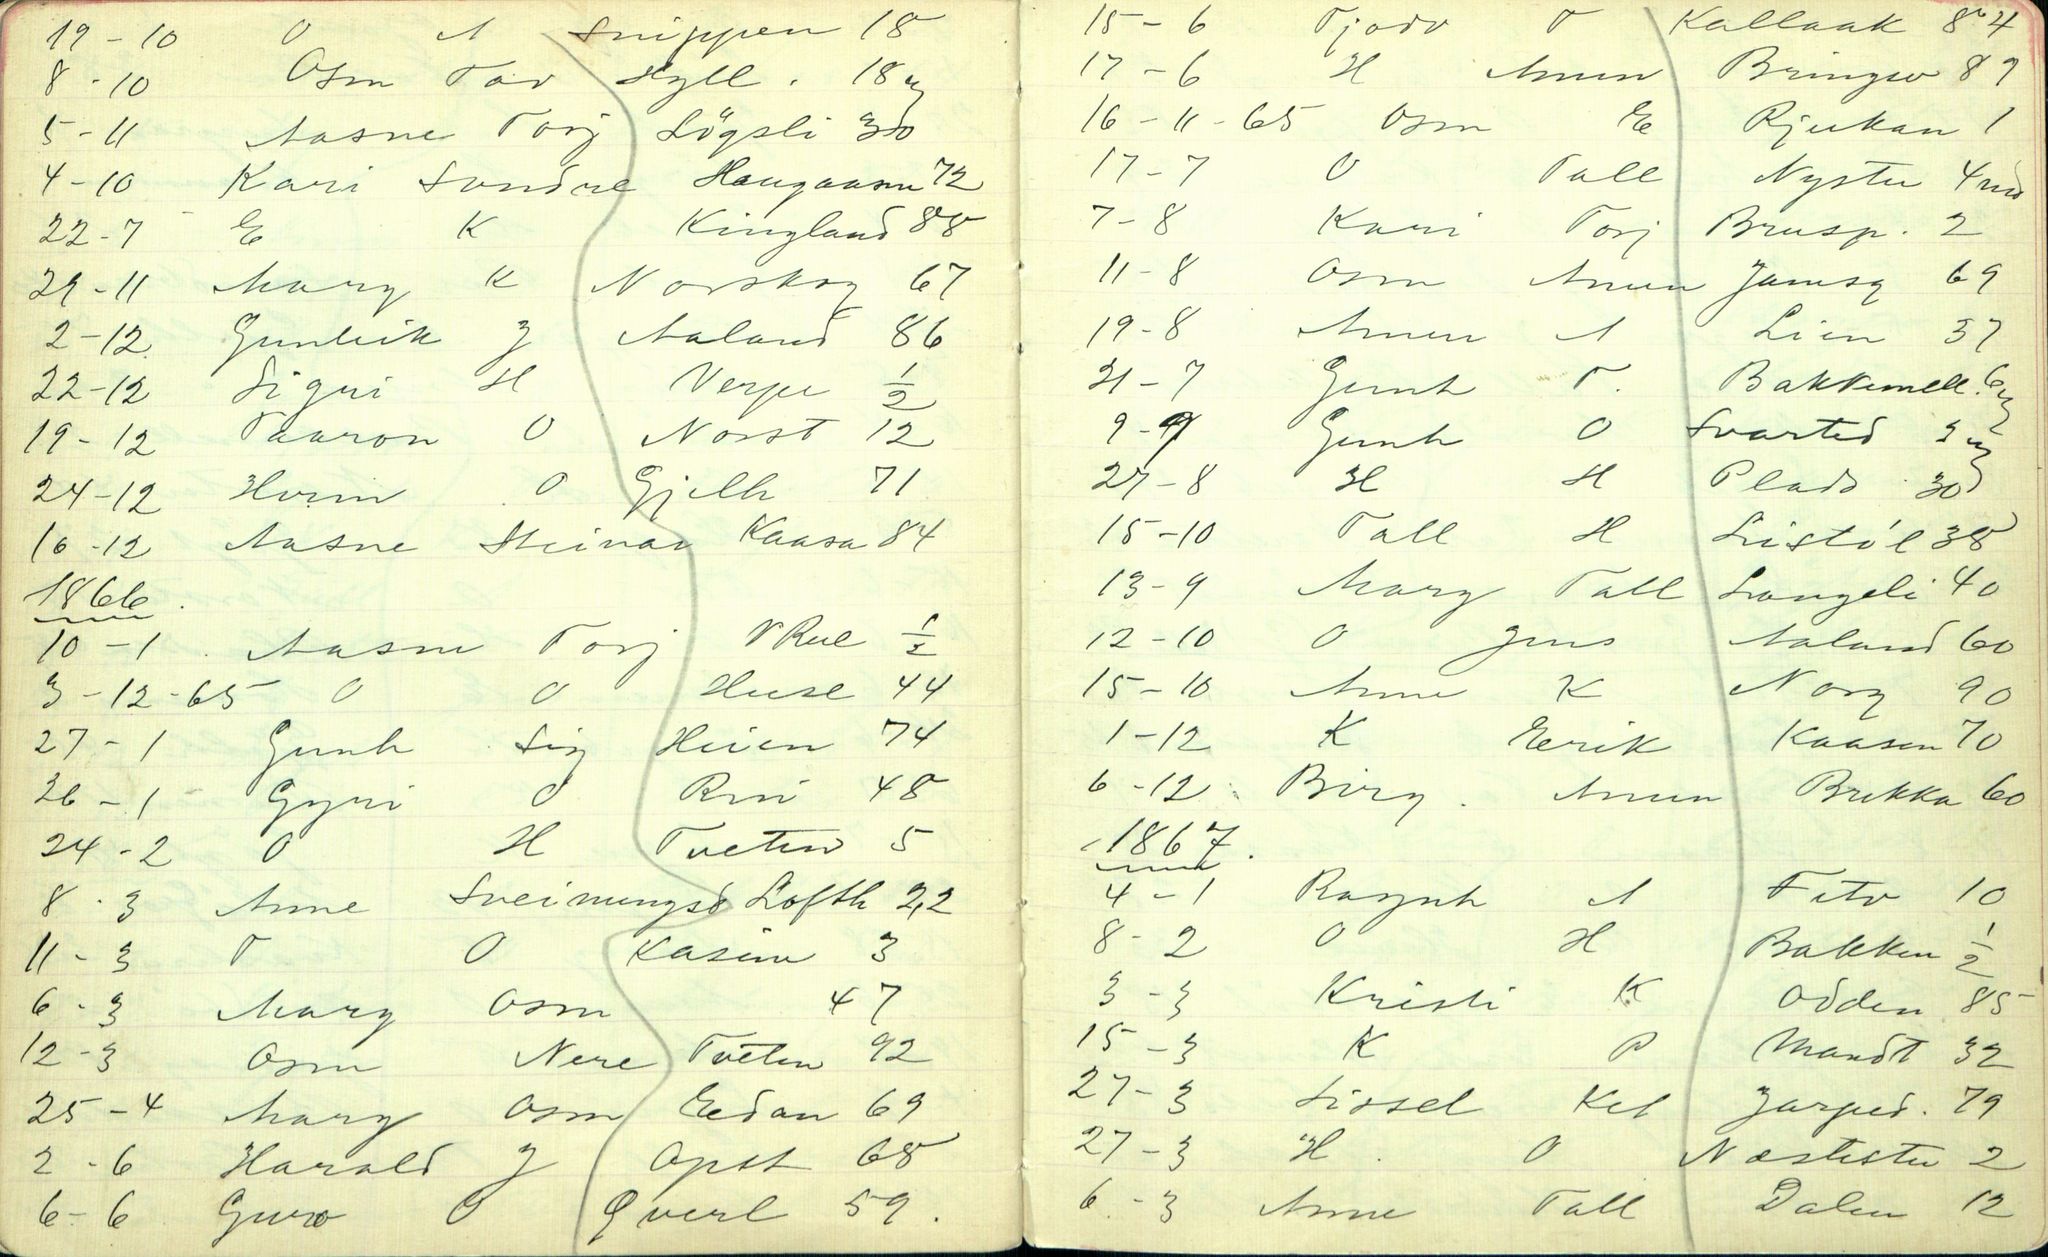 19-10 O A Snippen 18
8-10 Osm Tov Hyll. 18
5-11 Aasne Torj Lögsli 30
4-10 Kari Sondre Haugaasen 72
22-7 E K Kingland 88
29-11 Marg K Norskog 67
2-12 Gunleik J Aaland 86
22-12 Sigri H Verpe 1/2
19-12 Taaron O Norst 12
24-12 O Gjelh 71
16-12 Aasne Steinar Kaasa 84
1866.
10-1 Aasne Torj 1/2
3-12-65 O O 44
27-1 Gunh Sig Heien 74
26-1 Gyri O Rui 48
24-2 O H Tveten 5
8-3 Anne Sveinungsd Lofth 22
11-3 T O Kasin 3
6-3 Marg Osm 47
12-3 Osm Nere Tveten 92
25-4 Marg Osm Eedan 69
2-6 Harald J Opst 68
6-6 Guro O Qverl 59.
15-6 Tjodv T Kallaak 84
17-6 H Amun Bringsv 89
16-11-65 Osm E Rjukan 1
17-7 O Tall Nystu 4 md
7-8 Kari Torj Brusp. 2
11-8 Osm Amun Jamsg 69
19-8 Amun A Lien 37
21-7 Gunh T. Bakkemell. 6
9-9 Gunh O Svarted 3
27-8 H H Plads 30
15-10 Tall H Listól 38
13-9 Marg Tall Langeli 40
12-10 O Jens Aaland 60
15-10 Anne K Norg 90
1-12 K Eerik Kaasen 70
6-12 Birg. Amun Brekka 60
1867.
4-1 Ragnh A Fetv 10
8-2 O H Bakken 1/2
3-3 Kristi K Odden 85
15-3 K P Mandt 32
27-3 Sissel Ket Jarped. 79
27-3 H. O Næstestu 2
6-3 Anne Tall Dalen 12